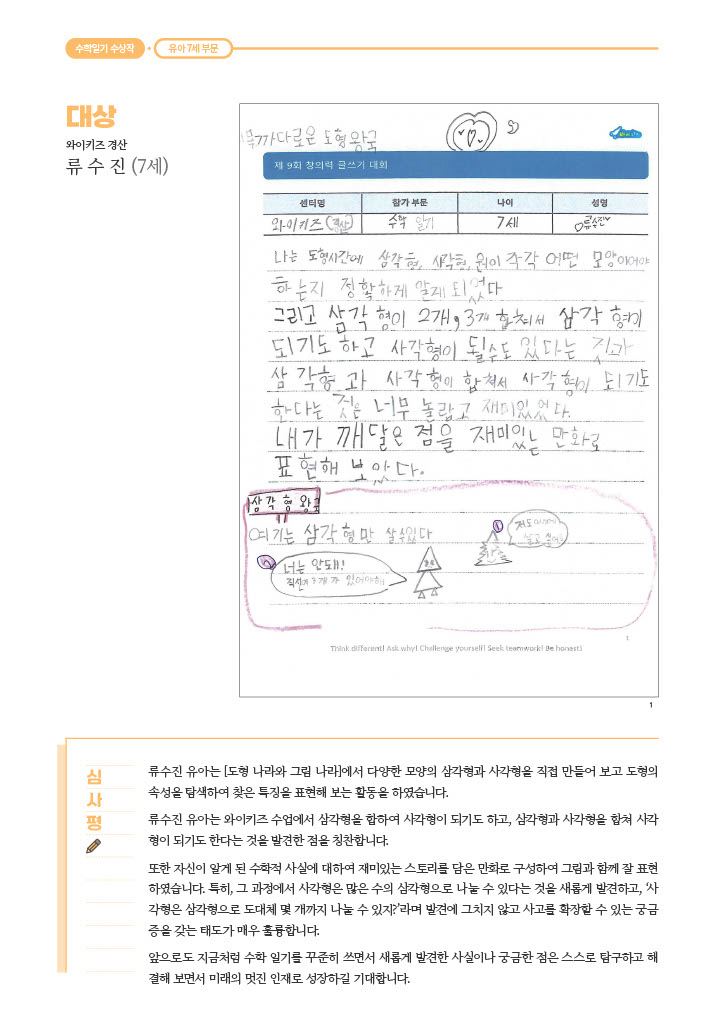 수학일기 수상작 유아 7세 부문
대상
와이키즈 경산
류수진 (7세)
까다로운 도형 왕국
제 9회 창의력 글쓰기 대회
센터명 참가 부문 나이 성명
와이키즈(경산) 수학 일기 7세 류수진
나는 도형시간에 삼각형, 사각형, 원이 각각 어떤 모양이어야
하는지 정확하게 알게 되었다
그리고 삼각형이 2개, 3개 합쳐서 삼각형이
되기도 하고 사각형이 될수도 있다는 것과
삼각형과 사각형이 합쳐서 사각형이 되기도
한다는 것은 너무 놀랍고 재미있었다.
내가 깨달은 점을 재미있는 만화로
표현해 보았다.
삼각형 왕국
여기는 삼각형만 살수있다
저도
살고 싶어요
너는 안돼!
직선이 3개가 있어야해
1
Think different! Ask why! Challenge yourself! Seek teamwork! Be honest!
1
심사평
류수진 유아는 [도형 나라와 그림 나라]에서 다양한 모양의 삼각형과 사각형을 직접 만들어 보고 도형의
속성을 탐색하여 찾은 특징을 표현해 보는 활동을 하였습니다.
류수진 유아는 와이키즈 수업에서 삼각형을 합하여 사각형이 되기도 하고, 삼각형과 사각형을 합쳐 사각
형이 되기도 한다는 것을 발견한 점을 칭찬합니다.
또한 자신이 알게 된 수학적 사실에 대하여 재미있는 스토리를 담은 만화로 구성하여 그림과 함께 잘 표현
하였습니다. 특히, 그 과정에서 사각형은 많은 수의 삼각형으로 나눌 수 있다는 것을 새롭게 발견하고, ‘사
각형은 삼각형으로 도대체 몇 개까지 나눌 수 있지?’라며 발견에 그치지 않고 사고를 확장할 수 있는 궁금
증을 갖는 태도가 매우 훌륭합니다.
앞으로도 지금처럼 수학 일기를 꾸준히 쓰면서 새롭게 발견한 사실이나 궁금한 점은 스스로 탐구하고 해
결해 보면서 미래의 멋진 인재로 성장하길 기대합니다.